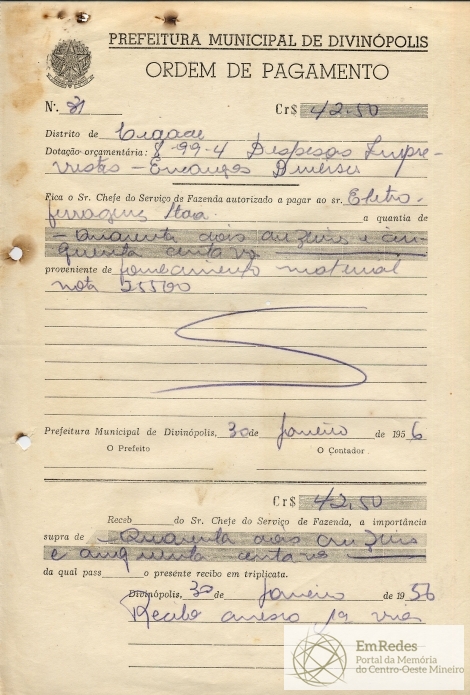 PREFEITURA MUNICIPAL DE DIVINÓPOLIS
ORDEM DE PAGAMENTO
N.º 31 Cr$ 42,50
Distrito de Cidade
Dotação orçamentária: 8-99-4 Despesas Impre-
vistas - Encargos Diversos
Fica o Sr. Chefe do Serviço de Fazenda autorizado a pagar ao sr. Eletro-
ferragens a quantia de
- Quarenta dois cruzeiros e cin-
quenta centavos
proveniente de fornecimento material
nota
Prefeitura Municipal de Divinópolis, 30 de Janeiro de 1956
O Prefeito O Contador
Cr$ 42,50
Receb do Sr. Chefe do Serviço de Fazenda, a importância
supra de - Quarenta dois cruzeiros
e cinquenta centavos
da qual pass o presente recibo em triplicata.
Divinópolis, 30 de Janeiro de 1956
Recibo anexo 1a via
EmRedes
Portal da Memória
do Centro-Oeste Mineiro